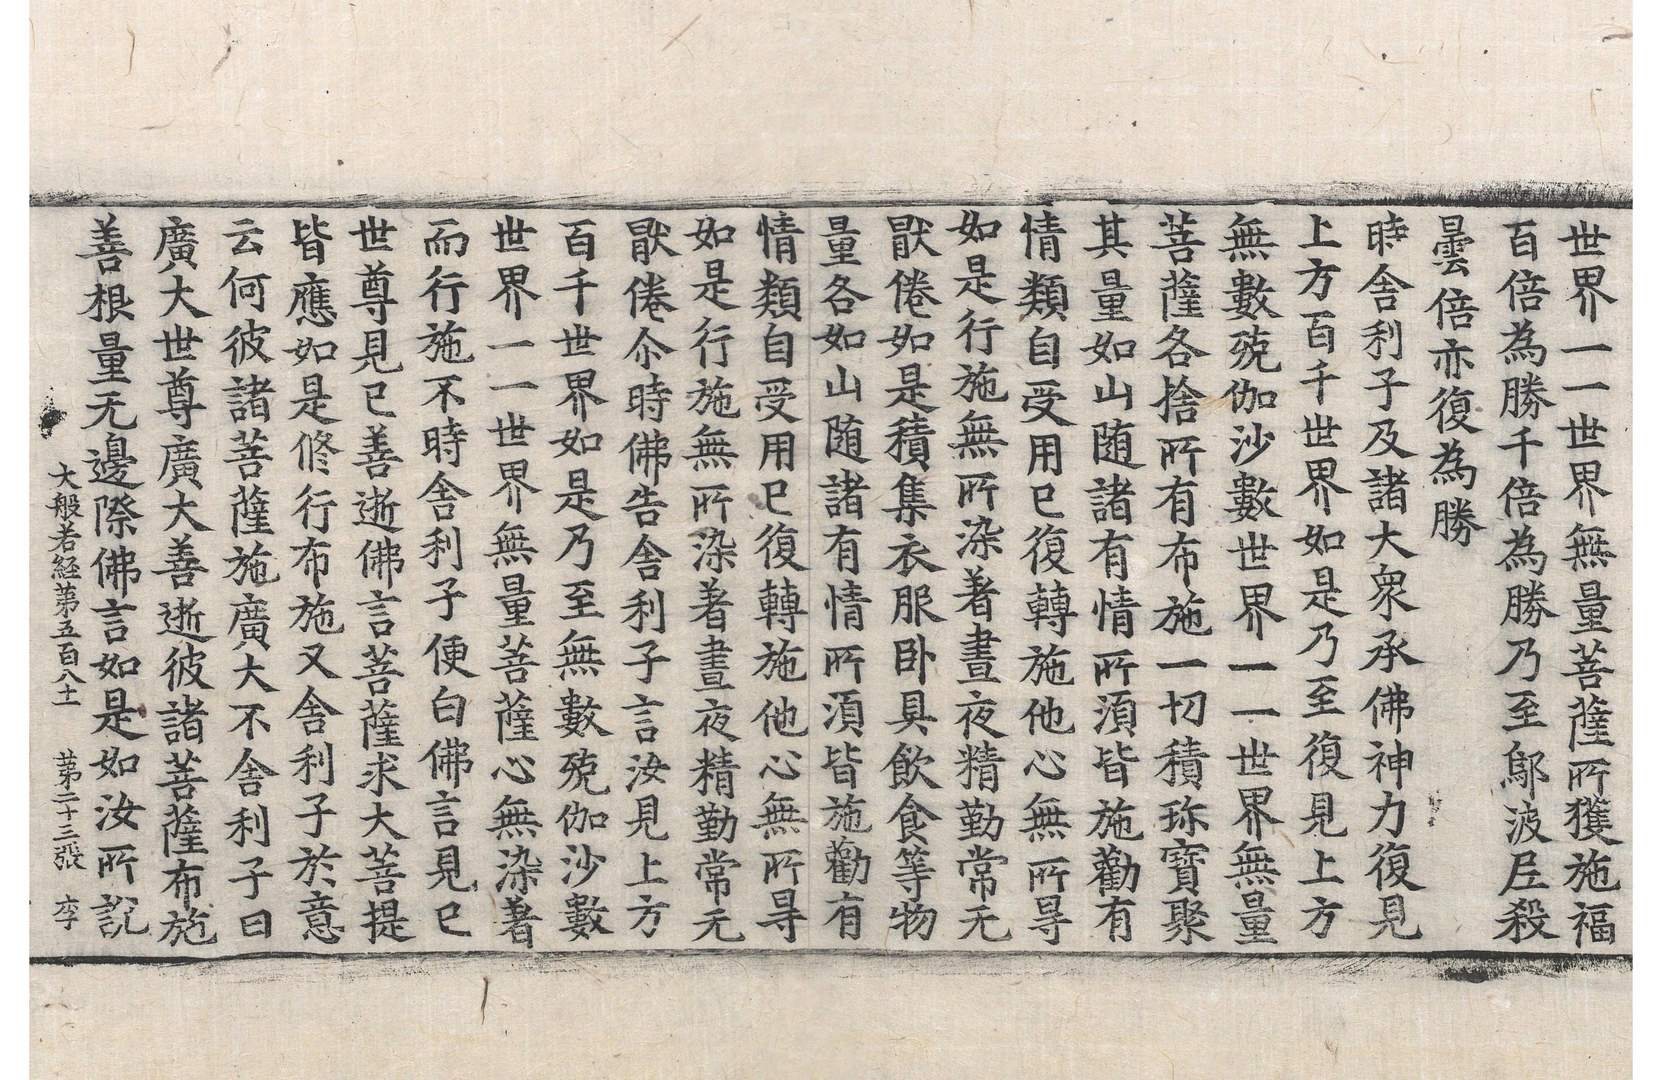 世界一一世界無量菩薩所獲施福
百倍為勝千倍為勝乃至鄔波尼殺
曇倍亦復為勝
時舍利子及諸大衆承佛神力復見
上方百千世界如是乃至復見上方
無數殑伽沙數世界一一世界無量
菩薩各捨所有布施一切積珎寶聚
其量如山随諸有情所湏皆施勸有
情類自受用已復轉施他心無所㝵
如是行施無所染著晝夜精勤常无
猒倦如是積集衣服卧具飲食等物
量各如山随諸有情所湏皆施勸有
情類自受用已復轉施他心無所㝵
如是行施無所染著晝夜精勤常无
猒倦尒時佛告舍利子言汝見上方
百千世界如是乃至無數殑伽沙數
世界一一世界無量菩薩心無染著
而行施不時舍利子便白佛言見已
世尊見已善逝佛言菩薩求大菩提
皆應如是修行布施又舍利子於意
云何彼諸菩薩施廣大不舍利子曰
廣大世尊廣大善逝彼諸菩薩布施
善根量无邊際佛言如是如汝所說
大般若經苐五百八十　苐二十三張　李